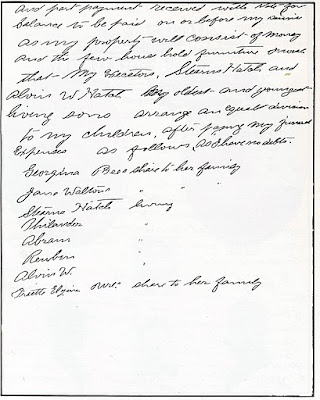 and part payment received with note for
balance to be paid on or before my
as my property will consist of money
and the few house hold furniture
that - My Executors, Stearns Hatch and
Alvin W Hatch my oldest - and youngest -
living sons arrange an equal division
to my children, after paying my funeral
Expenses as follows, as I have no debts.
Georgina share to her family
Jane Walton " "
Stearns Hatch living
Philander "
Abram "
Reuben "
Alvin W. "
share to her family